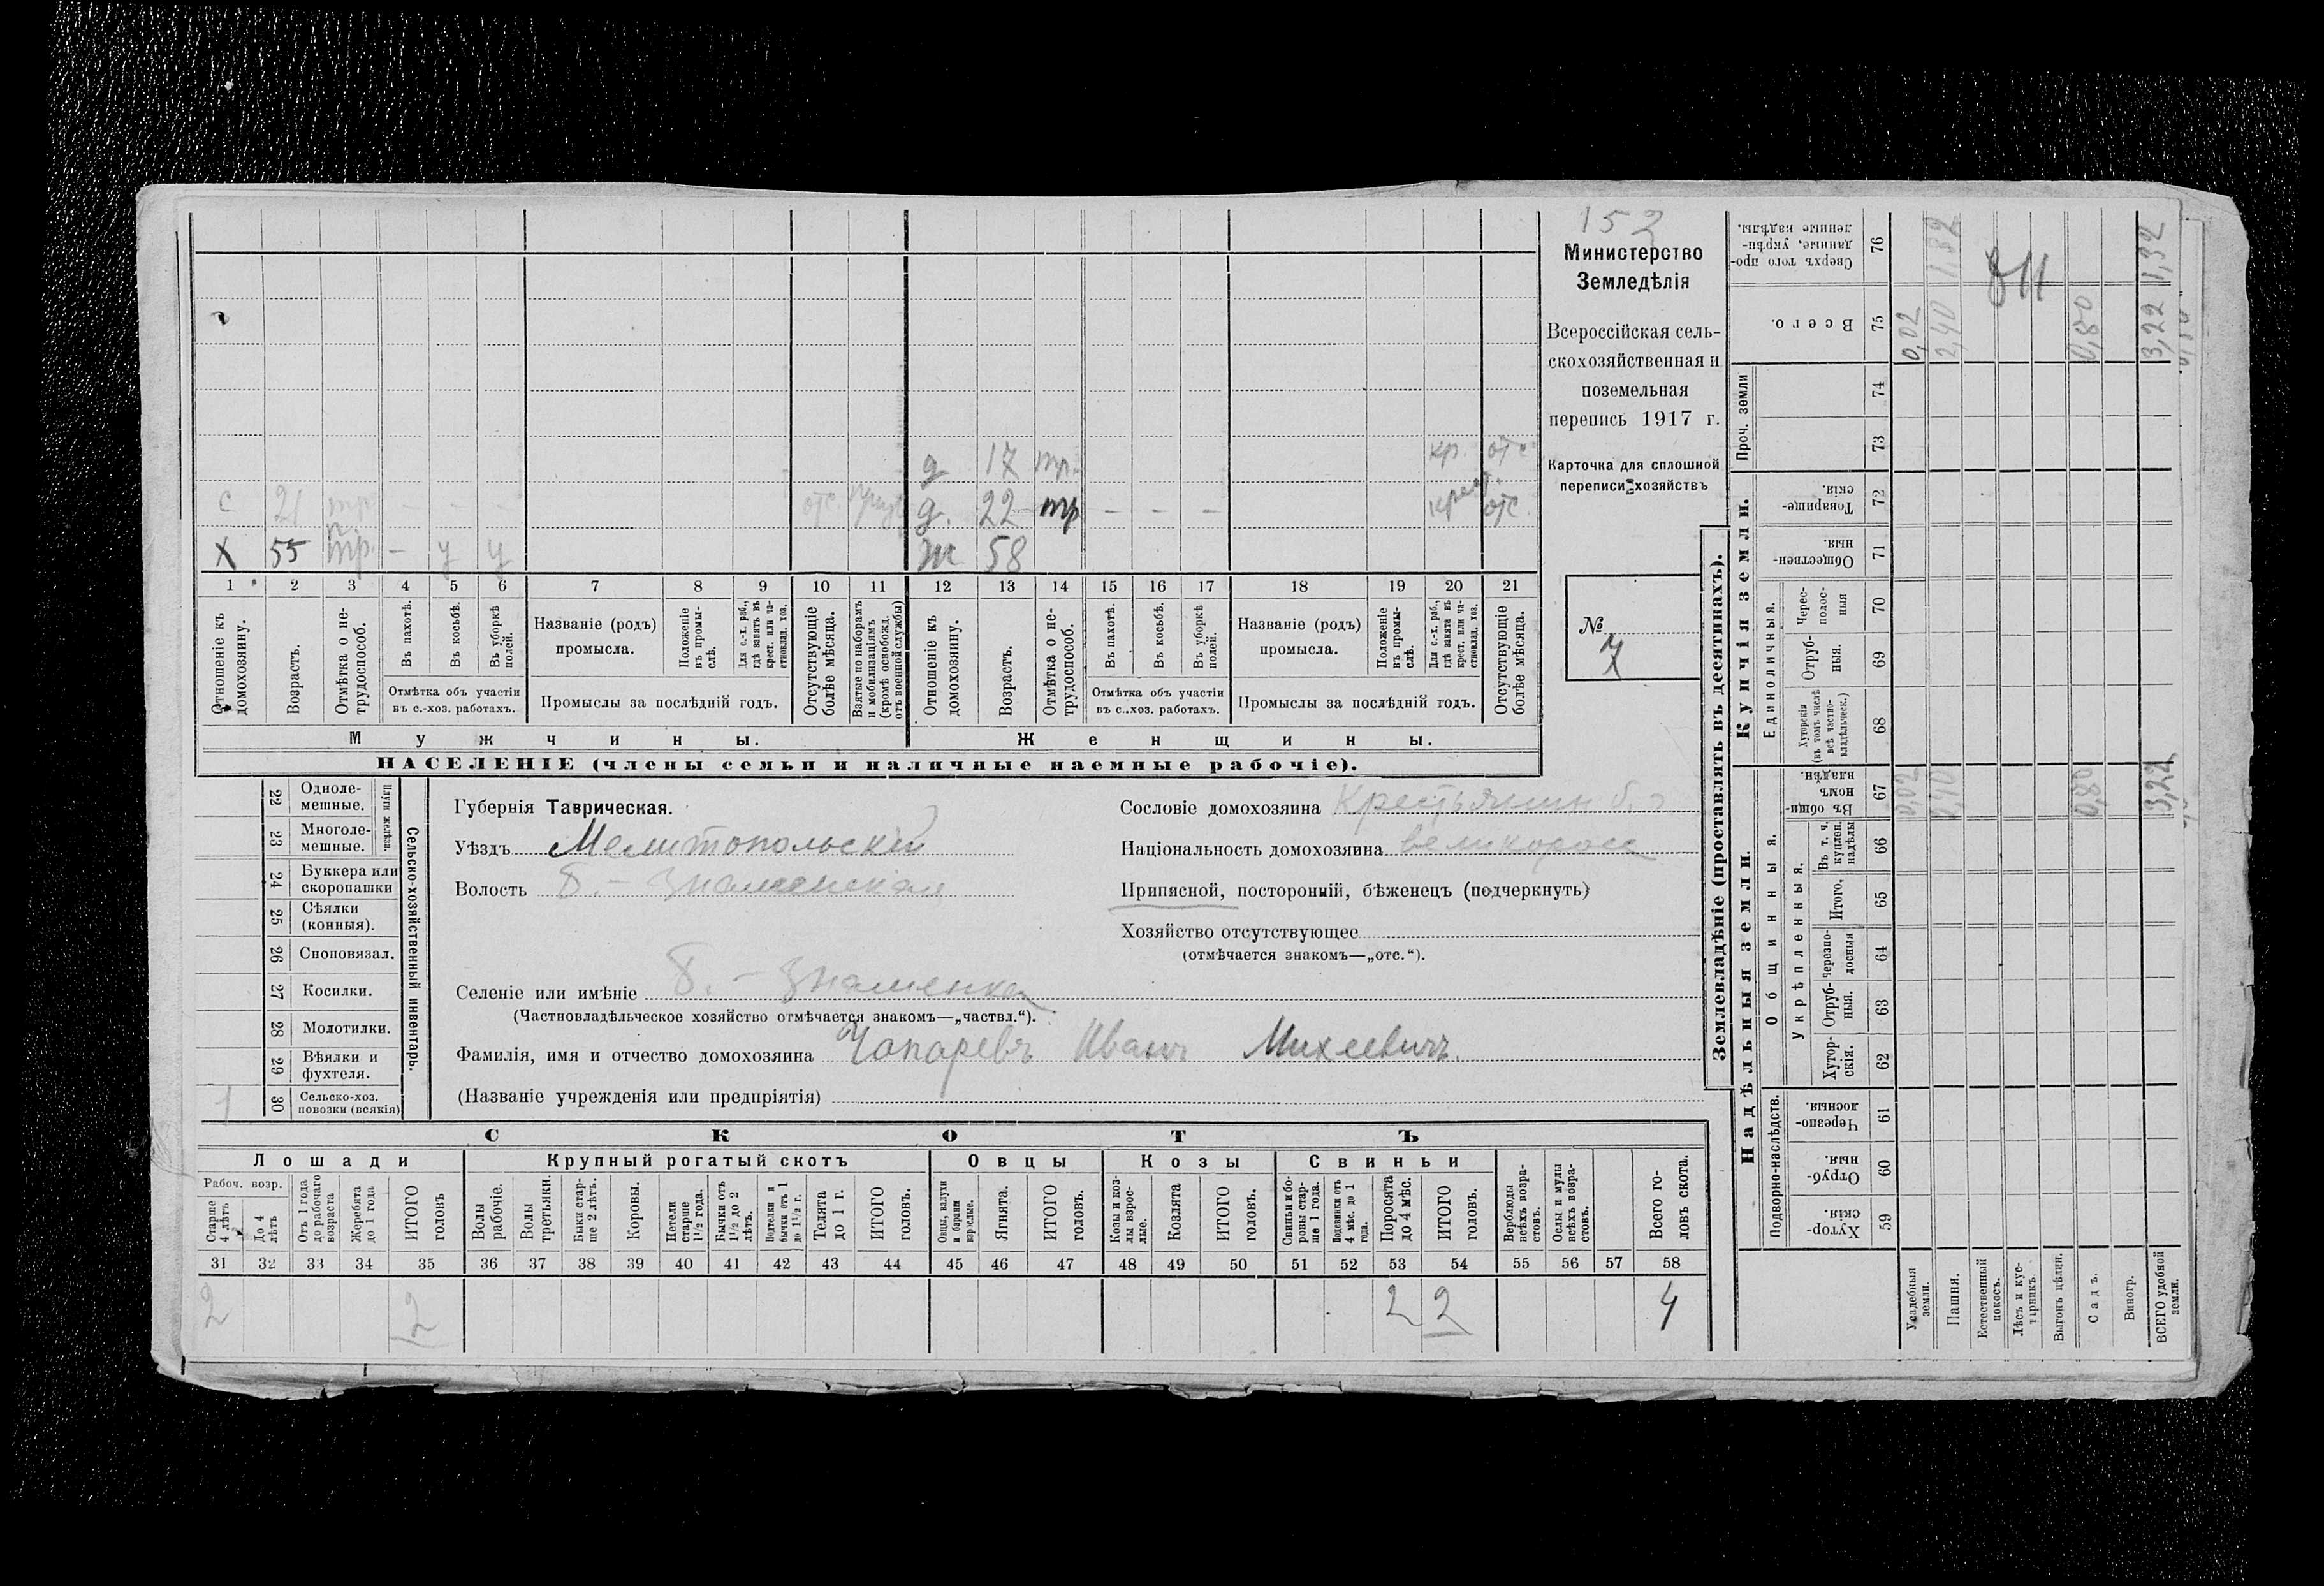 152
Министерство
Земледѣлія
Всероссійская сель-
скохозяйственная и
поземельная
перепись 1917 г.
Карточка для сплошной
переписи хозяйствъ
№
7
д 17 тр. кр. отс
с 21 тр - - - отс. д. 22 тр - - - крест. отс.
х 55 тр. - у у ж 58
1 2 3 4 5 6 7 8 9 10 11 12 13 14 15 16 17 18 19 20 21
Отношеніе къ домохозяину.
Возрастъ.
Отмѣтка о не-трудоспособ.
Въ пахотѣ.
Въ косьбѣ.
Въ уборкѣ полей.
Отмѣтка объ участіи въ с.-хоз. работахъ.
Названіе (родъ) промысла.
Положеніе въ промы-слѣ.
Для с.-х. раб., гдѣ занятъ въ крест. или ча-стновлад. хоз.
Промыслы за послѣдній годъ.
Отсутствующіе болѣе мѣсяца.
Взятые по наборамъ и мобилизаціямъ (кромѣ освобожд. отъ военной службы)
Отношеніе къ домохозяину.
Возрастъ.
Отмѣтка о не-трудоспособ.
Въ пахотѣ.
Въ косьбѣ.
Въ уборкѣ полей.
Отмѣтка объ участіи въ с.-хоз. работахъ.
Названіе (родъ) промысла.
Положеніе въ промы-слѣ.
Для с.-х. раб., гдѣ занята въ крест. или ча-стновлад. хоз.
Промыслы за послѣдній годъ.
Отсутствующіе болѣе мѣсяца.
Мужчины. Женщины.
НАСЕЛЕНІЕ (члены семьи и наличные наемные рабочіе).
22 Одноле-мешные.
23 Многоле-мешные.
Плуги желѣзн.
24 Буккера или скоропашки
25 Сѣялки (конныя).
26 Сноповязал.
27 Косилки.
28 Молотилки.
29 Вѣялки и фухтеля.
1 30 Сельско-хоз. повозки (всякія)
Сельско-хозяйственный инвентарь.
Губернія Таврическая.
Уѣздъ Мелитопольскій
Волость Б. - Знаменская
Сословіе домохозяина Крестьянин
Національность домохозяина великоросс
Приписной, посторонній, бѣженецъ (подчеркнуть)
Хозяйство отсутствующее
(отмѣчается знакомъ—„отс.“).
Селеніе или имѣніе Б. - Знаменка
(Частновладѣльческое хозяйство отмѣчается знакомъ—„частвл.“).
Фамилія, имя и отчество домохозяина Чапаревъ Иванъ Михеевичъ.
(Названіе учрежденія или предпріятія)
СКОТЪ
Лошади Крупный рогатый скотъ Овцы Козы Свиньи
Рабоч. возр.
Старше 4 лѣтъ
До 4 лѣтъ
Отъ 1 года до рабочаго возраста
Жеребята до 1 года
ИТОГО головъ
Волы рабочіе.
Волы третьяки.
Быки стар-ше 2 лѣтъ.
Коровы.
Нетели старше 1½ года.
Бычки отъ 1½ до 2 лѣтъ.
Подтелки и бычки отъ 1 до 1½ г.
Телята до 1 г.
ИТОГО головъ.
Овцы, валухи и бараны взрослые.
Ягнята.
ИТОГО головъ.
Козы и коз-лы взрос-лые.
Козлята
ИТОГО головъ.
Свиньи и бо-ровы стар-ше 1 года.
Подсвинки отъ 4 мѣс. до 1 года.
Поросята до 4 мѣс.
ИТОГО головъ.
Верблюды всѣхъ возра-стовъ.
Ослы и мулы всѣхъ возра-стовъ.
Всего го-ловъ скота.
31 32 33 34 35 36 37 38 39 40 41 42 43 44 45 46 47 48 49 50 51 52 53 54 55 56 57 58
2 2 2 2 4
Землевладѣніе (проставлять въ десятинахъ).
Надѣльныя земли.
Купчія земли.
Подворно-наслѣдств.
Хутор-скія. 59
Отруб-ныя. 60
Черезпо-лосныя 61
Общинныя.
Укрѣпленныя.
Хутор-скія. 62
Отруб-ныя. 63
Черезпо-лосныя 64
Итого. 65
Въ т. ч. куплен. надѣлы 66
Въ общи-номъ владѣн. 67
Единоличныя.
Хуторскія (въ томъ числѣ всѣ частно-владѣльческ.) 68
Отруб-ныя. 69
Черес-полос-ныя 70
Обществен-ныя. 71
Товарище-скія. 72
Проч. земли
73 74
Всего. 75
Сверхъ того про-данные, укрѣп-ленные надѣлы. 76
Усадебныя земли. 0,02 0,02
Пашня. 2,40 2,40 1,32
Естественный покосъ.
Лѣсъ и кус-тарникъ.
Выгонъ цѣлин.
Садъ. 0,80 0,80
Виногр.
ВСЕГО удобной земли. 3,22 3,22 1,32